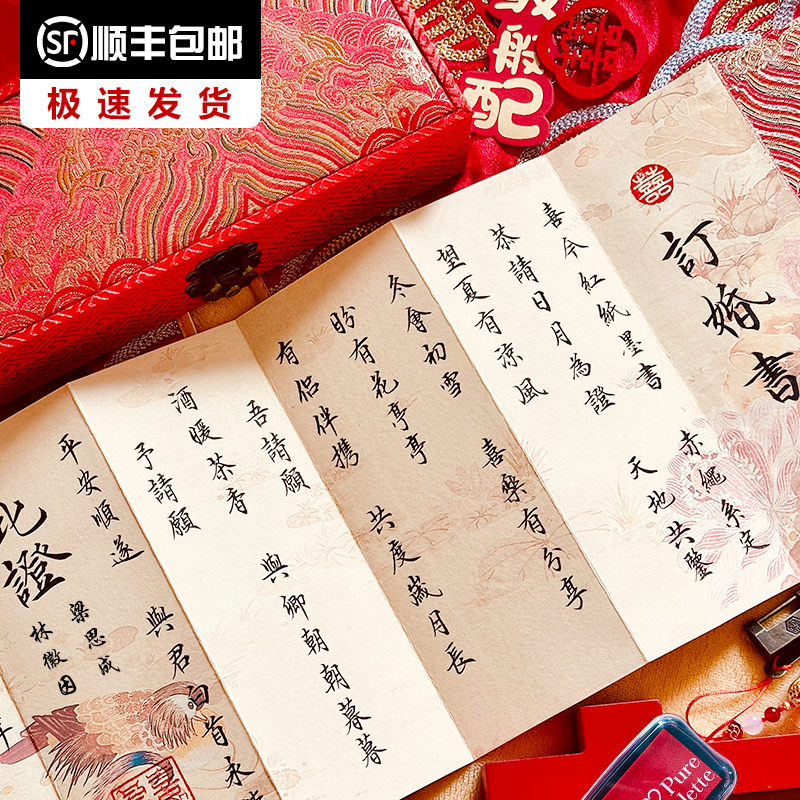 SF顺丰包邮
极速发货
般配
囍
囍
訂婚書
喜今紅紙墨書 赤繩系定
恭請日月為證 天地共鑒
望夏有涼風
冬會初雪 喜樂有分享
盼有花亭亭 共度歲月長
有侶伴携
吾請願 與卿朝朝暮暮
酒暖茶香
予請願 與君白首永
平安順遂
此證
梁思成
林徽因
年
Pure
lette